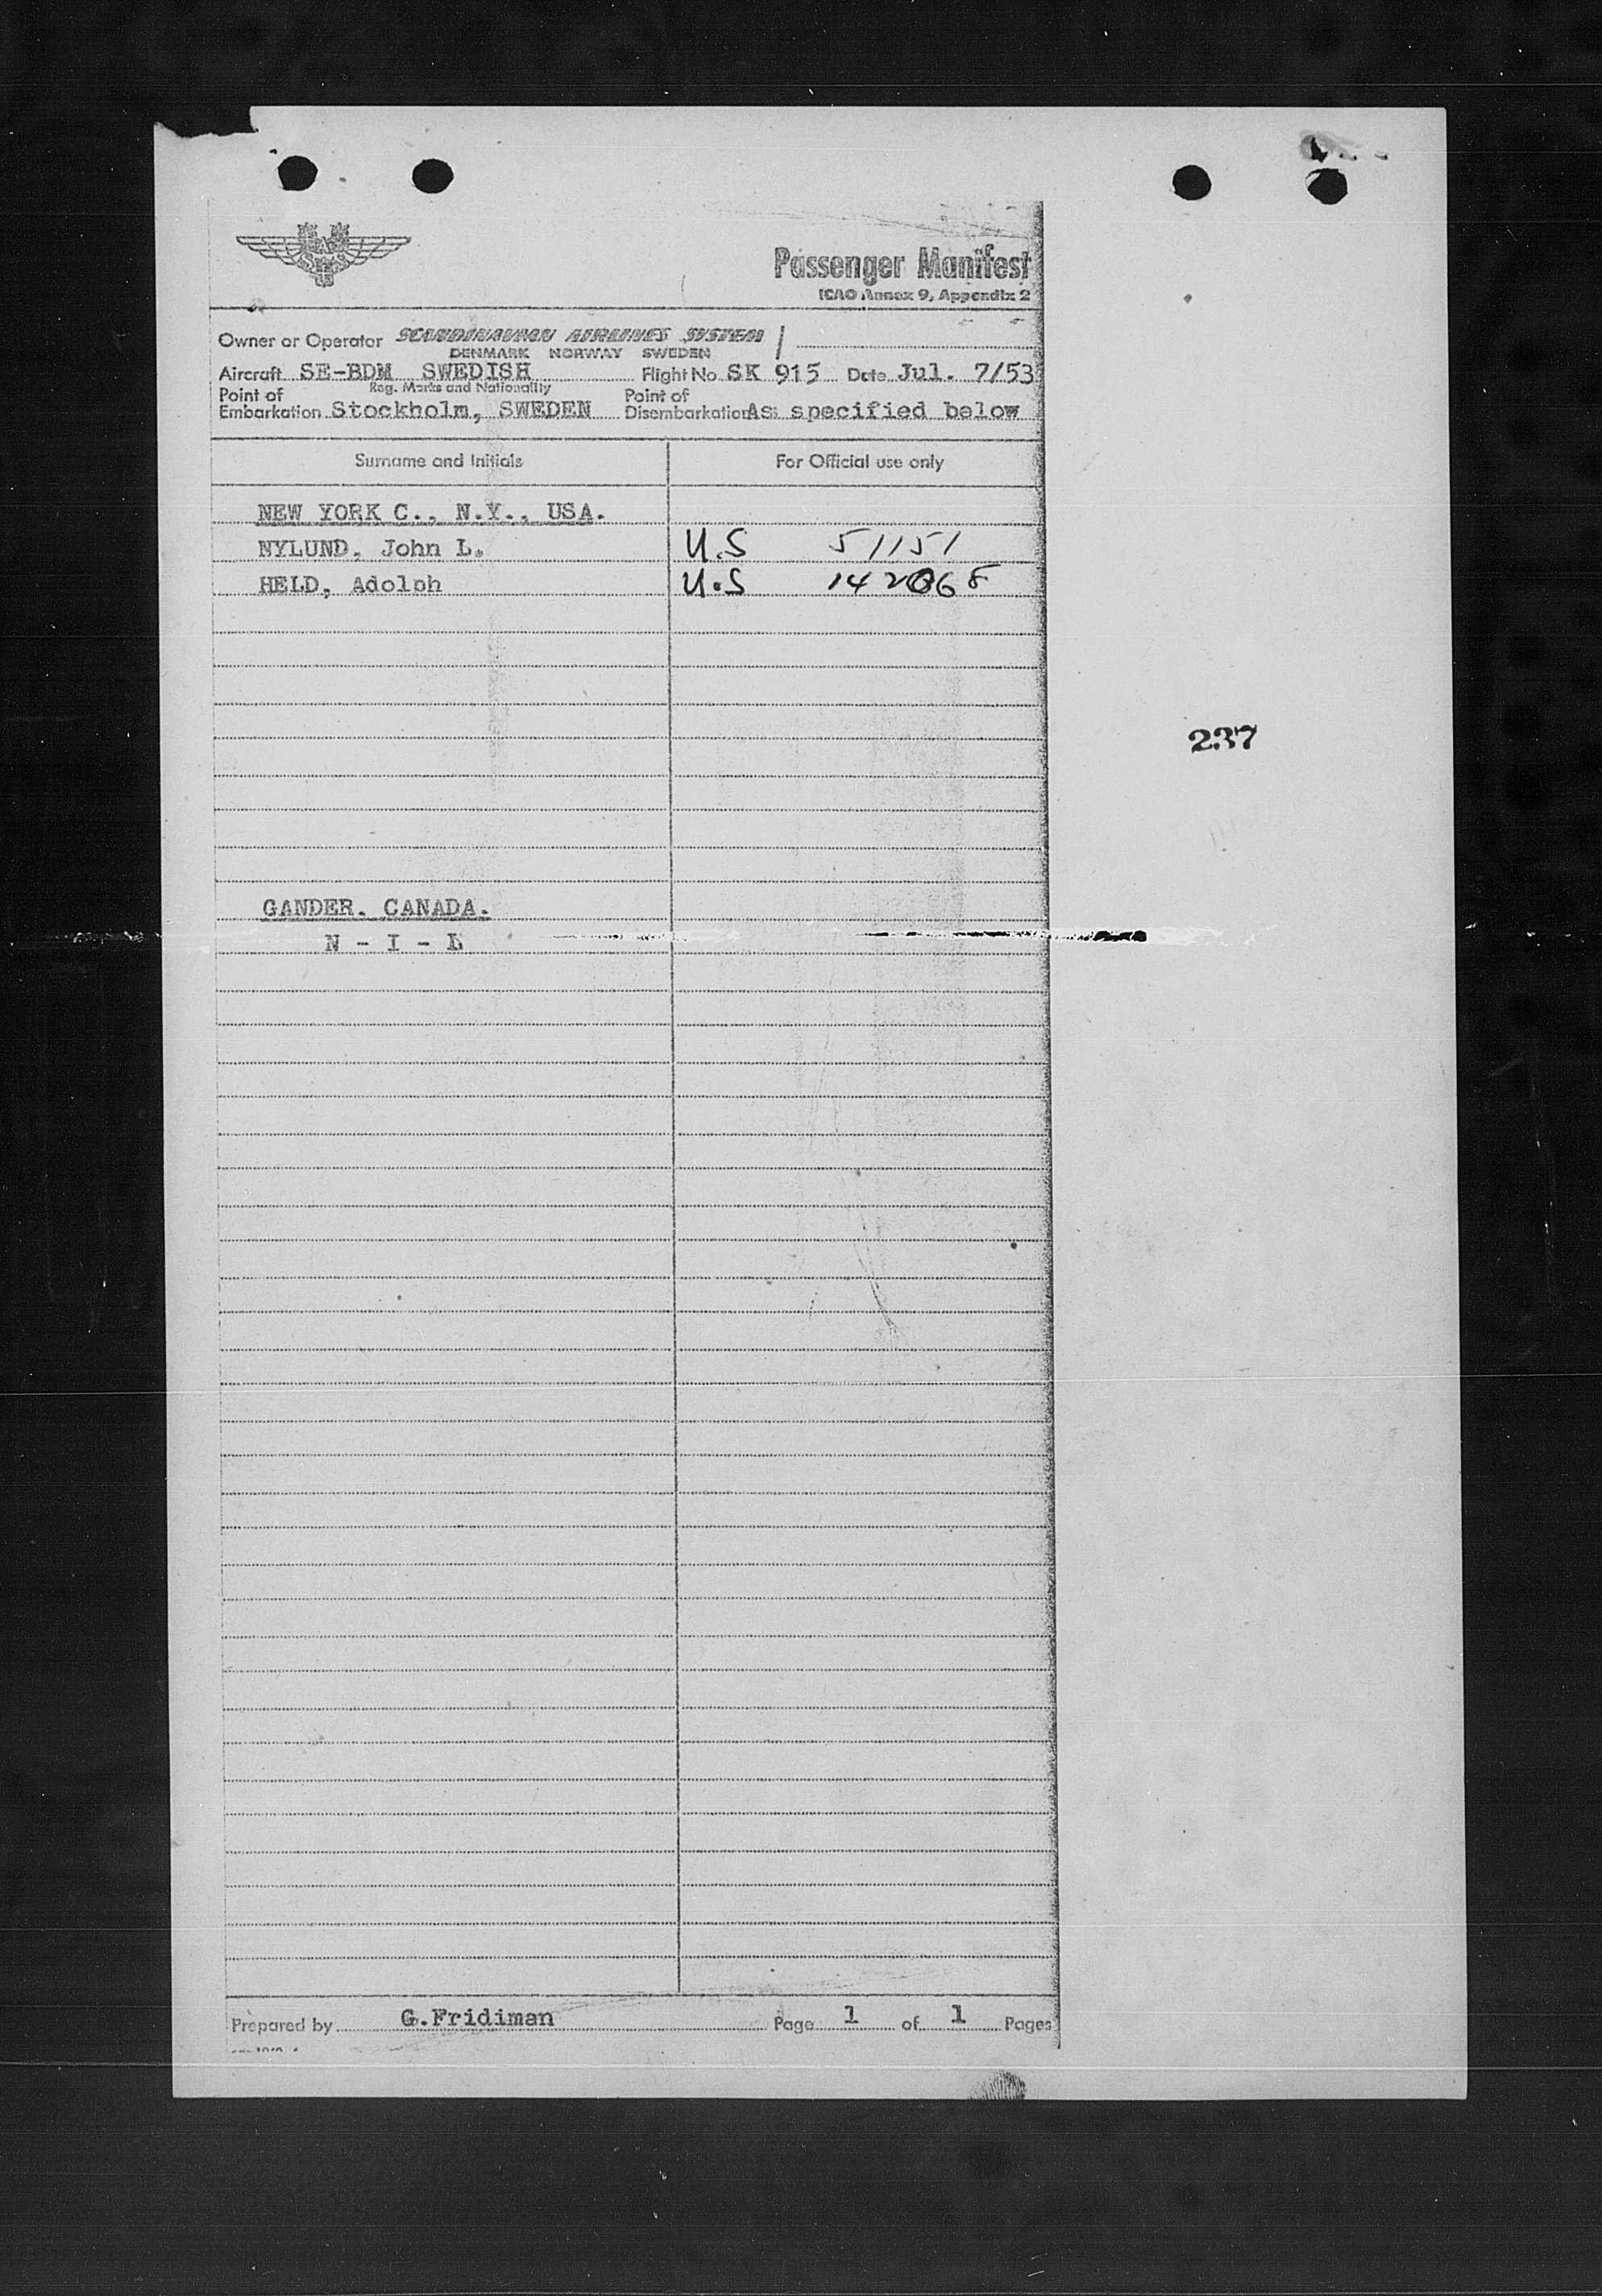 SAS
Passenger Manifest
ICAO Annex 9, Appendix 2
Owner or Operator SCANDINAVIAN AIRLINES SYSTEM
DENMARK NORWAY SWEDEN
Aircraft SE-BDM SWEDISH Flight No. SK 915 Date Jul. 7/53
Reg. Marks and Nationality
Point of Embarkation Stockholm, SWEDEN Point of Disembarkation As specified below
Surname and Initials For Official use only
NEW YORK C., N.Y., USA.
NYLUND, John L. U.S 51151
HELD, Adolph U.S
237
GANDER. CANADA.
N - I - L
Prepared by G.Fridiman Page 1 of 1 Pages